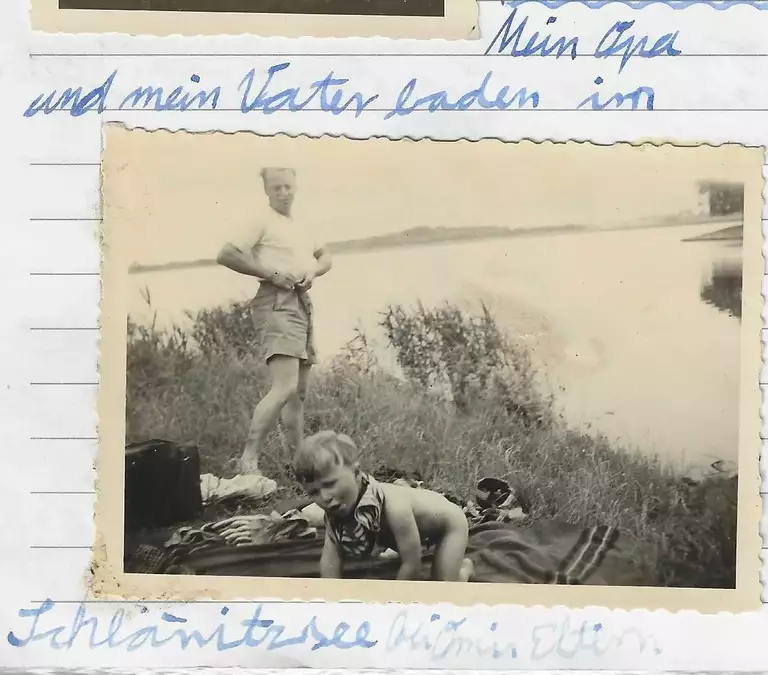 Mein Opa
und mein Vater baden im
Schlänitzsee bei Omis Eltern